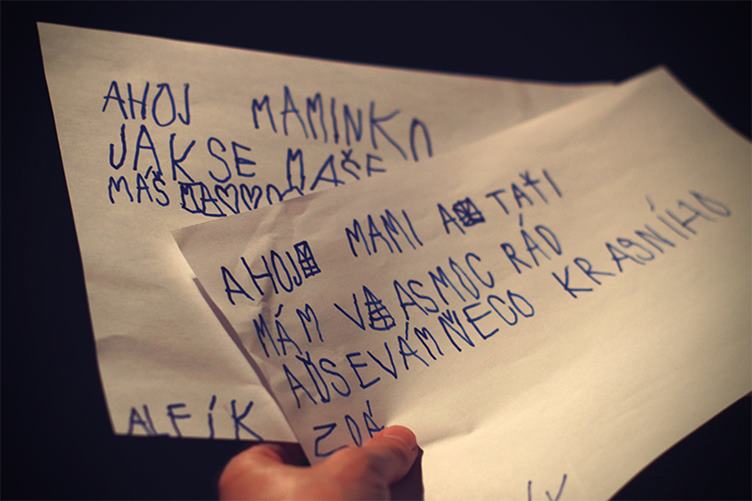 AHOJ MAMINKO
JAKSE MAŠE
MÁŠ
ALFÍK
AHOJ MAMI A TAŤI
MÁM VASMOC RÁD
AĎSEVÁMŇECO KRASNÍHO
ZDÁ